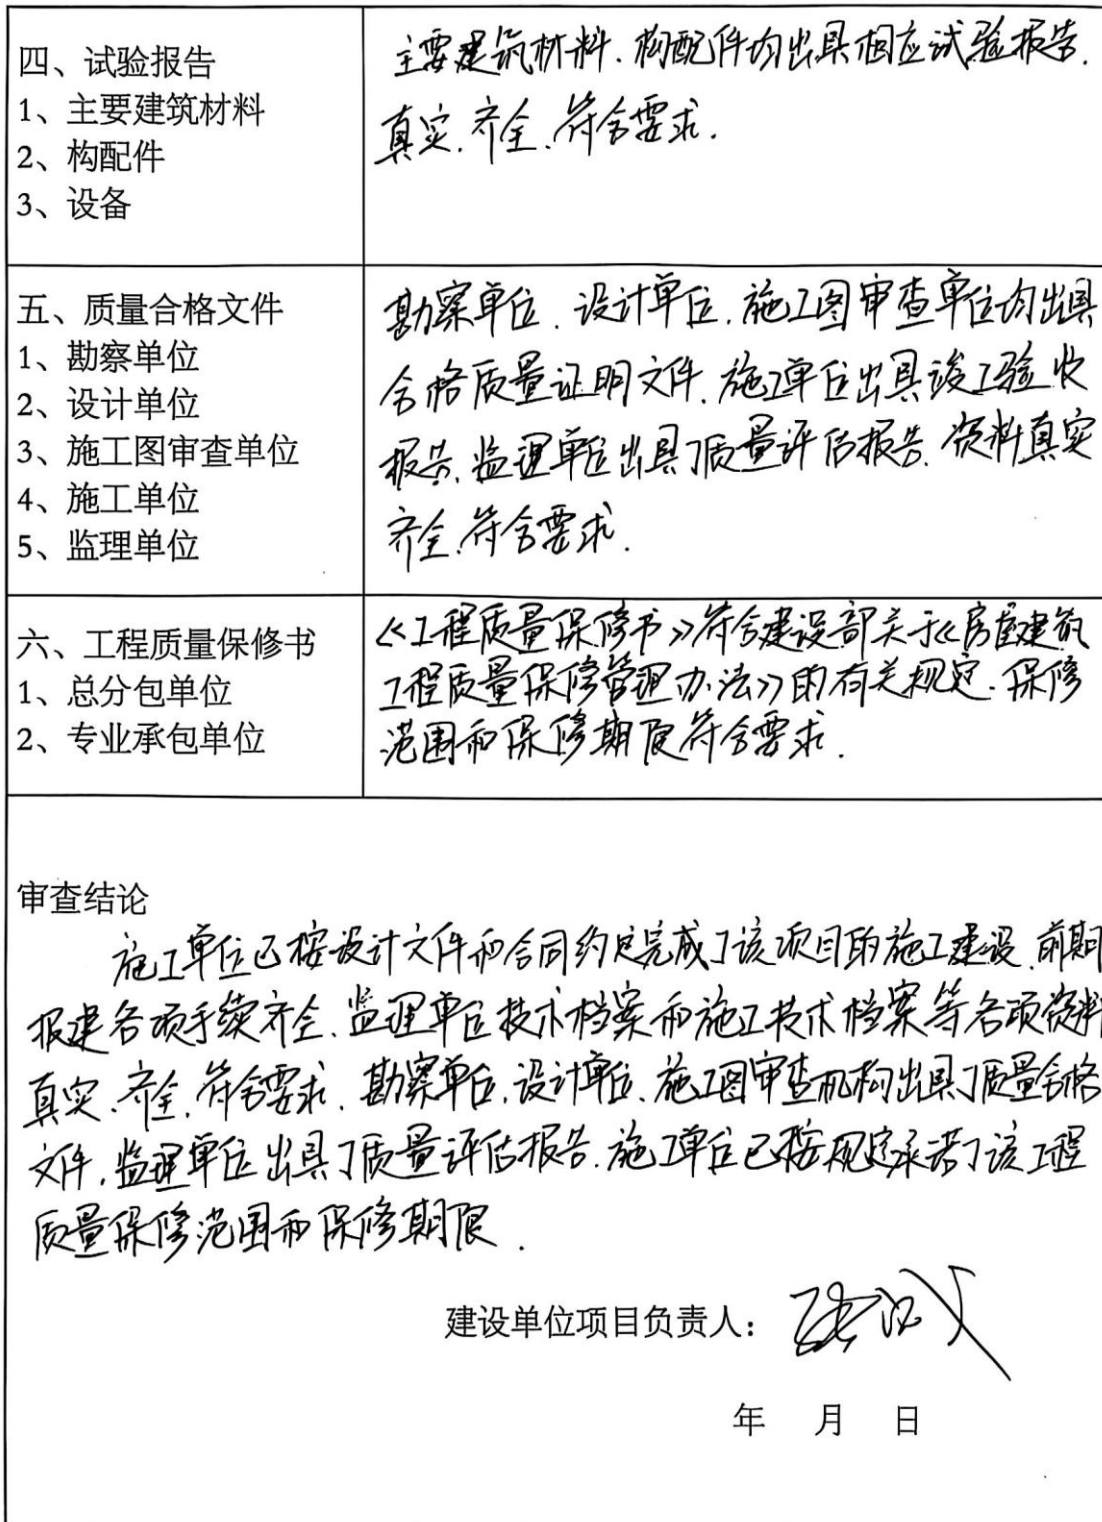 四、试验报告
1、主要建筑材料
2、构配件
3、设备
主要建筑材料、构配件均出具相应试验报告.
真实、齐全、符合要求.
五、质量合格文件
1、勘察单位
2、设计单位
3、施工图审查单位
4、施工单位
5、监理单位
勘察单位、设计单位、施工图审查单位均出具
合格质量证明文件、施工单位出具竣工验收
报告、监理单位出具了质量评估报告、资料真实
齐全、符合要求.
六、工程质量保修书
1、总分包单位
2、专业承包单位
《工程质量保修书》符合建设部关于《房屋建筑
工程质量保修管理办法》的有关规定、保修
范围和保修期限符合要求.
审查结论
施工单位已按设计文件和合同约定完成了该项目的施工建设、前期
报建各项手续齐全、监理单位技术档案和施工技术档案等各项资料
真实、齐全、符合要求、勘察单位、设计单位、施工图审查机构出具了质量合格
文件、监理单位出具了质量评估报告、施工单位已按规定承诺了该工程
质量保修范围和保修期限.
建设单位项目负责人：
年 月 日